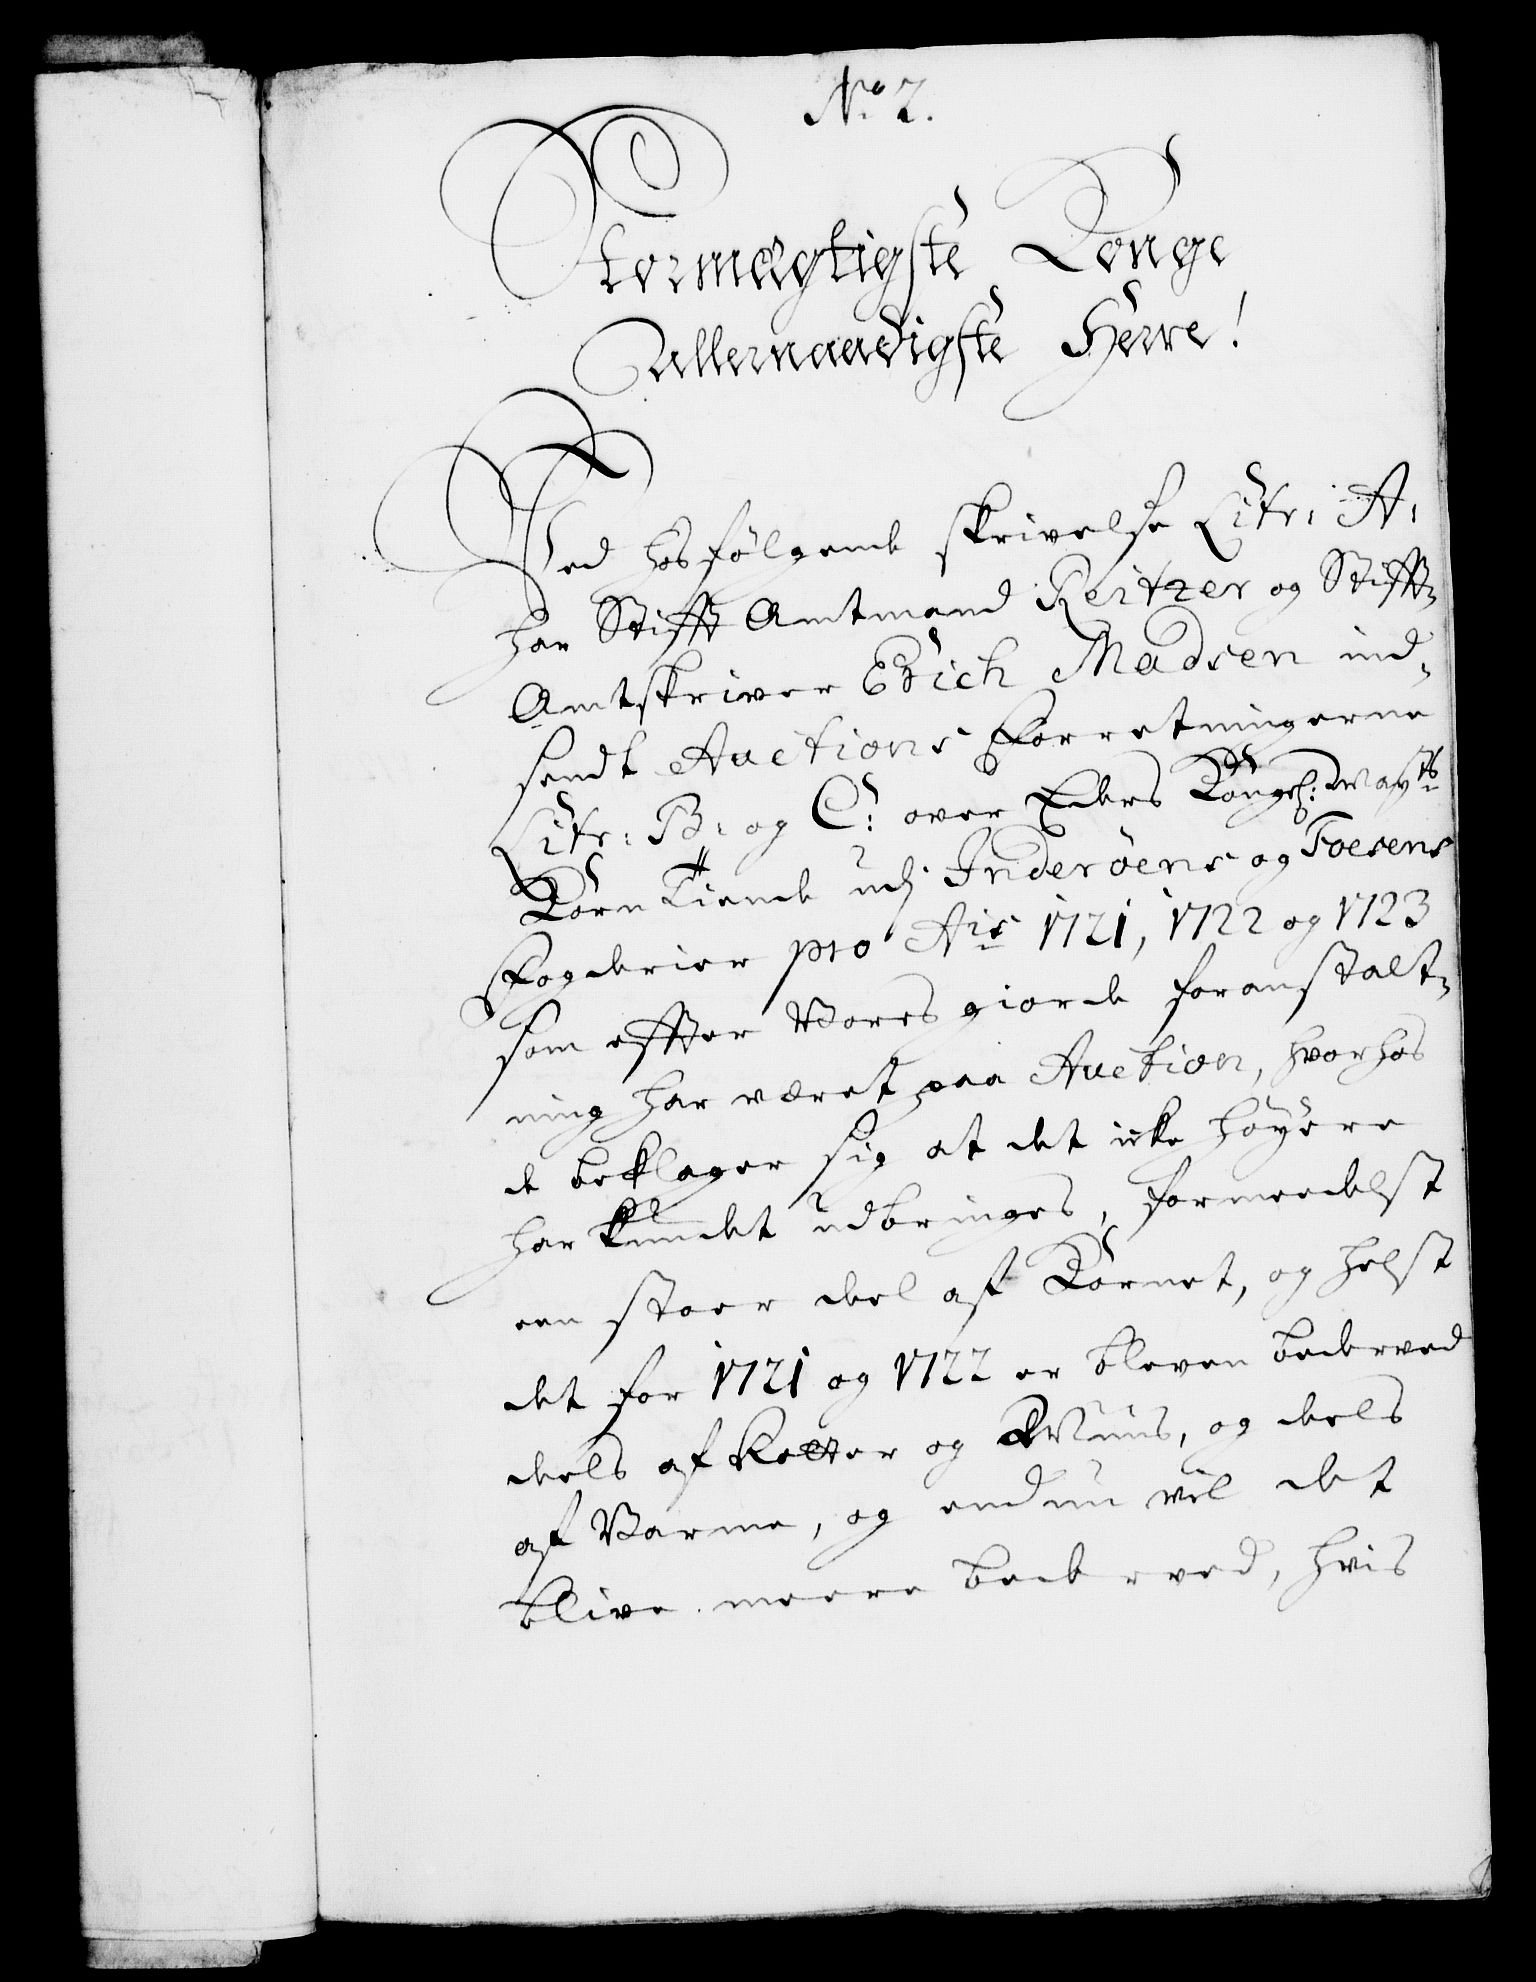 No. 2.
Stormægtigste Konge
Allernaadigste Herre!
Ved hosfølgende skrivelse Litr: A:
har Stifft Amtmand Reitzer og Stiffts
Amtskriver Erich Madsen ind-
sendt Auctions Forretningerne
Litr: B: og C: over Eders Kongl: May.ts
Korn Tiende udj Inderøens og Foesens
Fogderier pro Ais 1721, 1722 og 1723
som effter Vores giorde foranstalt-
ning har været paa Auction, hvorhos
de beklager sig at det icke høyere
har kundet udbringes, formedelst
een stoer deel af Kornet, og helst
det for 1721 og 1722 er bleven bederved
deels af Rotter og Muus, og deels
af Varme, og endnu vil det
blive meere bederved, hvis